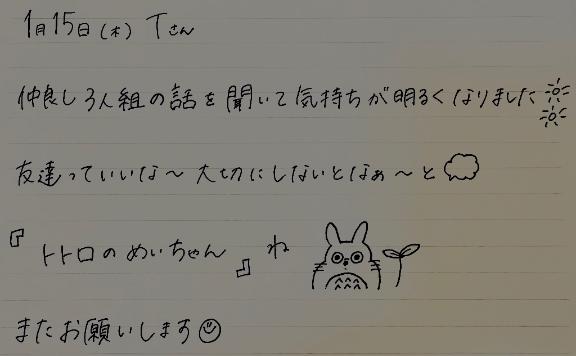 1月15日(木) Tさん
仲良し3人組の話を聞いて気持ちが明るくなりました
友達っていいな～大切にしないとなぁ～と
『トトロのめいちゃん』ね
またお願いします